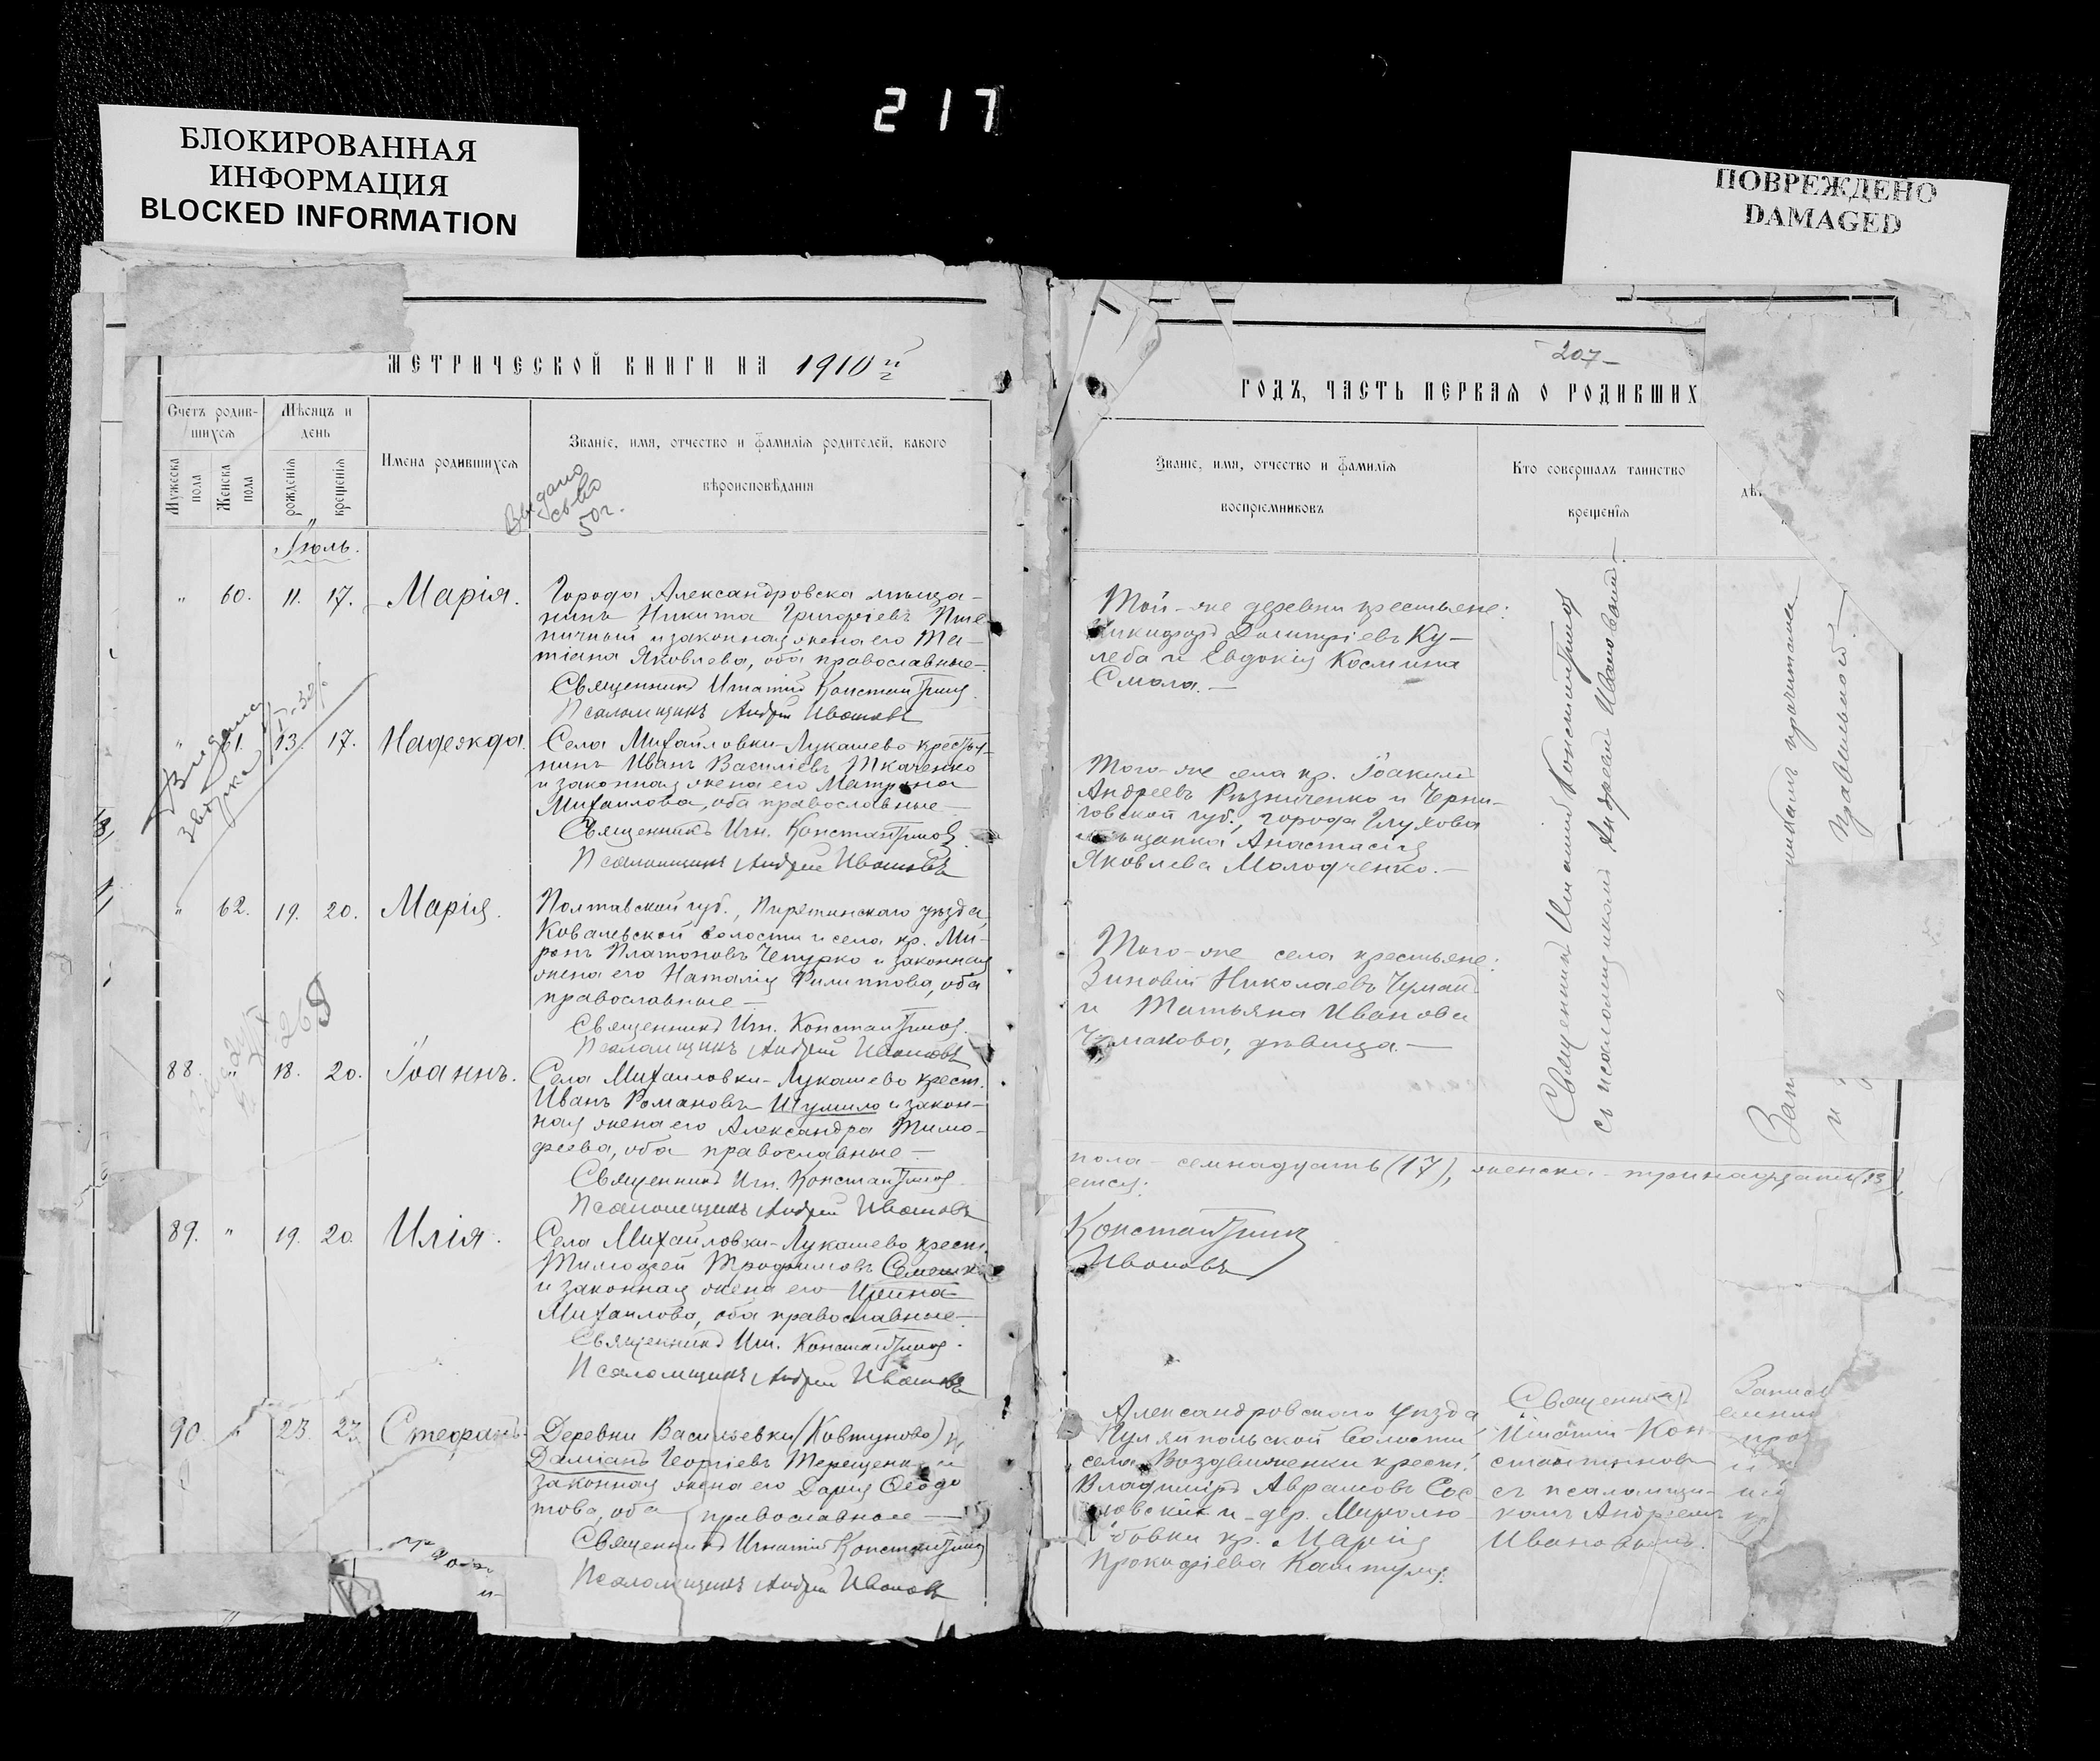 217
БЛОКИРОВАННАЯ
ИНФОРМАЦИЯ
BLOCKED INFORMATION
ПОВРЕЖДЕНО
DAMAGED
МЕТРИЧЕСКОЙ КНИГИ НА 1910 й
Счетъ родив-
шихся
Мѣсяцъ и
день
Мужеска
пола
Женска
пола
рожденія
крещенія
Имена родившихся
Званіе, имя, отчество и фамилія родителей, какого
вѣроисповѣданія
Выдано
св-во
50 г.
Іюль.
" 60. 11. 17. Марія.
Города Александровска мѣща-
нинъ Никита Григоріевъ Пше-
ничный и законная жена его Та-
тіана Яковлева, оба православные
Священникъ Игнатій Константиновъ
Псаломщикъ Андрей Ивановъ
Видана
" 61. 13. 17. Надежда.
Села Михайловки-Лукашево крестья-
нинъ Иванъ Василіевъ Ткаченко
и законная жена его Матрона
Михаилова, оба православные
Священникъ Игн. Константиновъ
Псаломщикъ Андрей Ивановъ
" 62. 19. 20. Марія.
Полтавской губ., Пирятинскаго уѣзда,
Ковалевской волости и села кр. Ми-
ронъ Платоновъ Чепурко и законная
жена его Наталія Филиппова, оба
православные
Священникъ Игн. Константиновъ
Псаломщикъ Андрей Ивановъ
88. " 18. 20. Іоаннъ.
Села Михаиловки-Лукашево крест.
Иванъ Романовъ Шумило и закон-
ная жена его Александра Тимо-
феева, оба православные
Священникъ Игн. Константиновъ
Псаломщикъ Андрей Ивановъ
89. " 19. 20. Илія.
Села Михайловки-Лукашево крест.
Тимофей Трофимовъ
и законная жена его Ирина
Михаилова, оба православные
Священникъ Игн. Константиновъ
Псаломщикъ Андрей Ивановъ
90. " 23. 23. Стефанъ.
Деревни Васильевки (Ковтуново)
Даміанъ Георгіевъ Терещенко и
законная жена его Дарія Ѳеодо
това, оба православные
Священникъ Игнатій Константиновъ
Псаломщикъ Андрей Ивановъ
207
ГОДЪ, ЧАСТЬ ПЕРВАЯ О РОДИВШИХ
Званіе, имя, отчество и фамилія
воспріемниковъ
Кто совершалъ таинство
крещенія
Той-же деревни крестьяне:
Никифоръ Димитріевъ Ку-
леба и Евдокія Космина
Смола.
Того-же села кр. Іоакимъ
Андреевъ Рѣзниченко и Черни-
говской губ., города Глухова
мѣщанка Анастасія
Яковлева Молодченко.
Того-же села крестьяне:
Зиновій Николаевъ Чумакъ
и Татьяна Иванова
Чумакова, дѣвица.
Священникъ Игнатій Константиновъ
съ псаломщикомъ Андреемъ Ивановымъ.
пола - семнадцать (17), женска - тринадцать (13),
Константиновъ
Ивановъ
Александровскаго уѣзда
Гуляйпольской волости
села Воздвиженки крест.
Владиміръ Аврамовъ Сос
новскій и дер. Миролю
бовки кр. Марія
Прокофіева
Священникъ
Игнатій Кон
стантиновъ
съ псаломщи-
комъ Андреемъ
Ивановымъ.